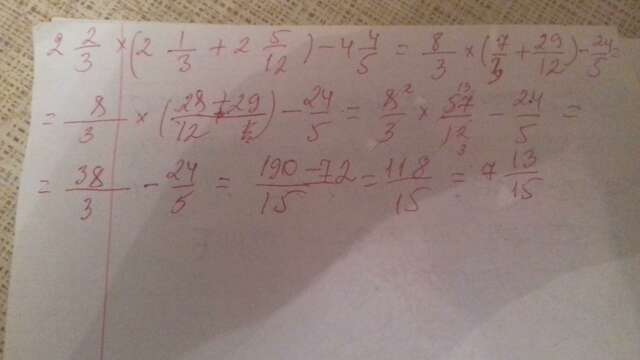 2 2/3 × (2 1/3 + 2 5/12) - 4 4/5 = 8/3 × (7/3 + 29/12) - 24/5 =
= 8/3 × (28+29/12) - 24/5 = 8/3 × 57/12 - 24/5 =
= 38/3 - 24/5 = 190-72/15 = 118/15 = 7 13/15